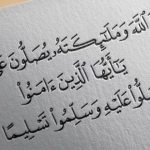 اللَّهَ وَمَلَـٰٓئِكَتَهُۥ يُصَلُّونَ
يَـٰٓأَيُّهَا ٱلَّذِينَ ءَامَنُوا۟
عَلَيْهِ وَسَلِّمُوا۟ تَسْلِيمًا